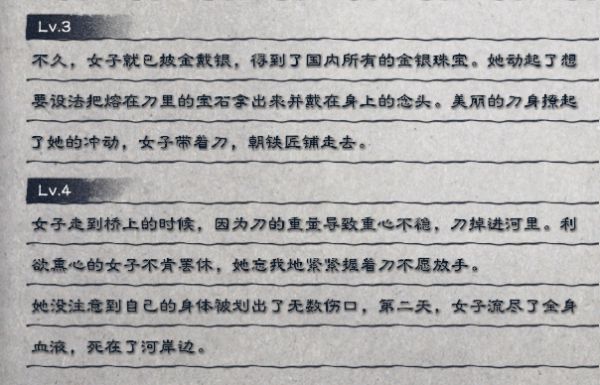 Lv.3
不久，女子就已披金戴银，得到了国内所有的金银珠宝。她动起了想
要设法把熔在刀里的宝石拿出来并戴在身上的念头。美丽的刀身撩起
了她的冲动，女子带着刀，朝铁匠铺走去。
Lv.4
女子走到桥上的时候，因为刀的重量导致重心不稳，刀掉进河里。利
欲熏心的女子不肯罢休，她忘我地紧紧握着刀不愿放手。
她没注意到自己的身体被划出了无数伤口，第二天，女子流尽了全身
血液，死在了河岸边。